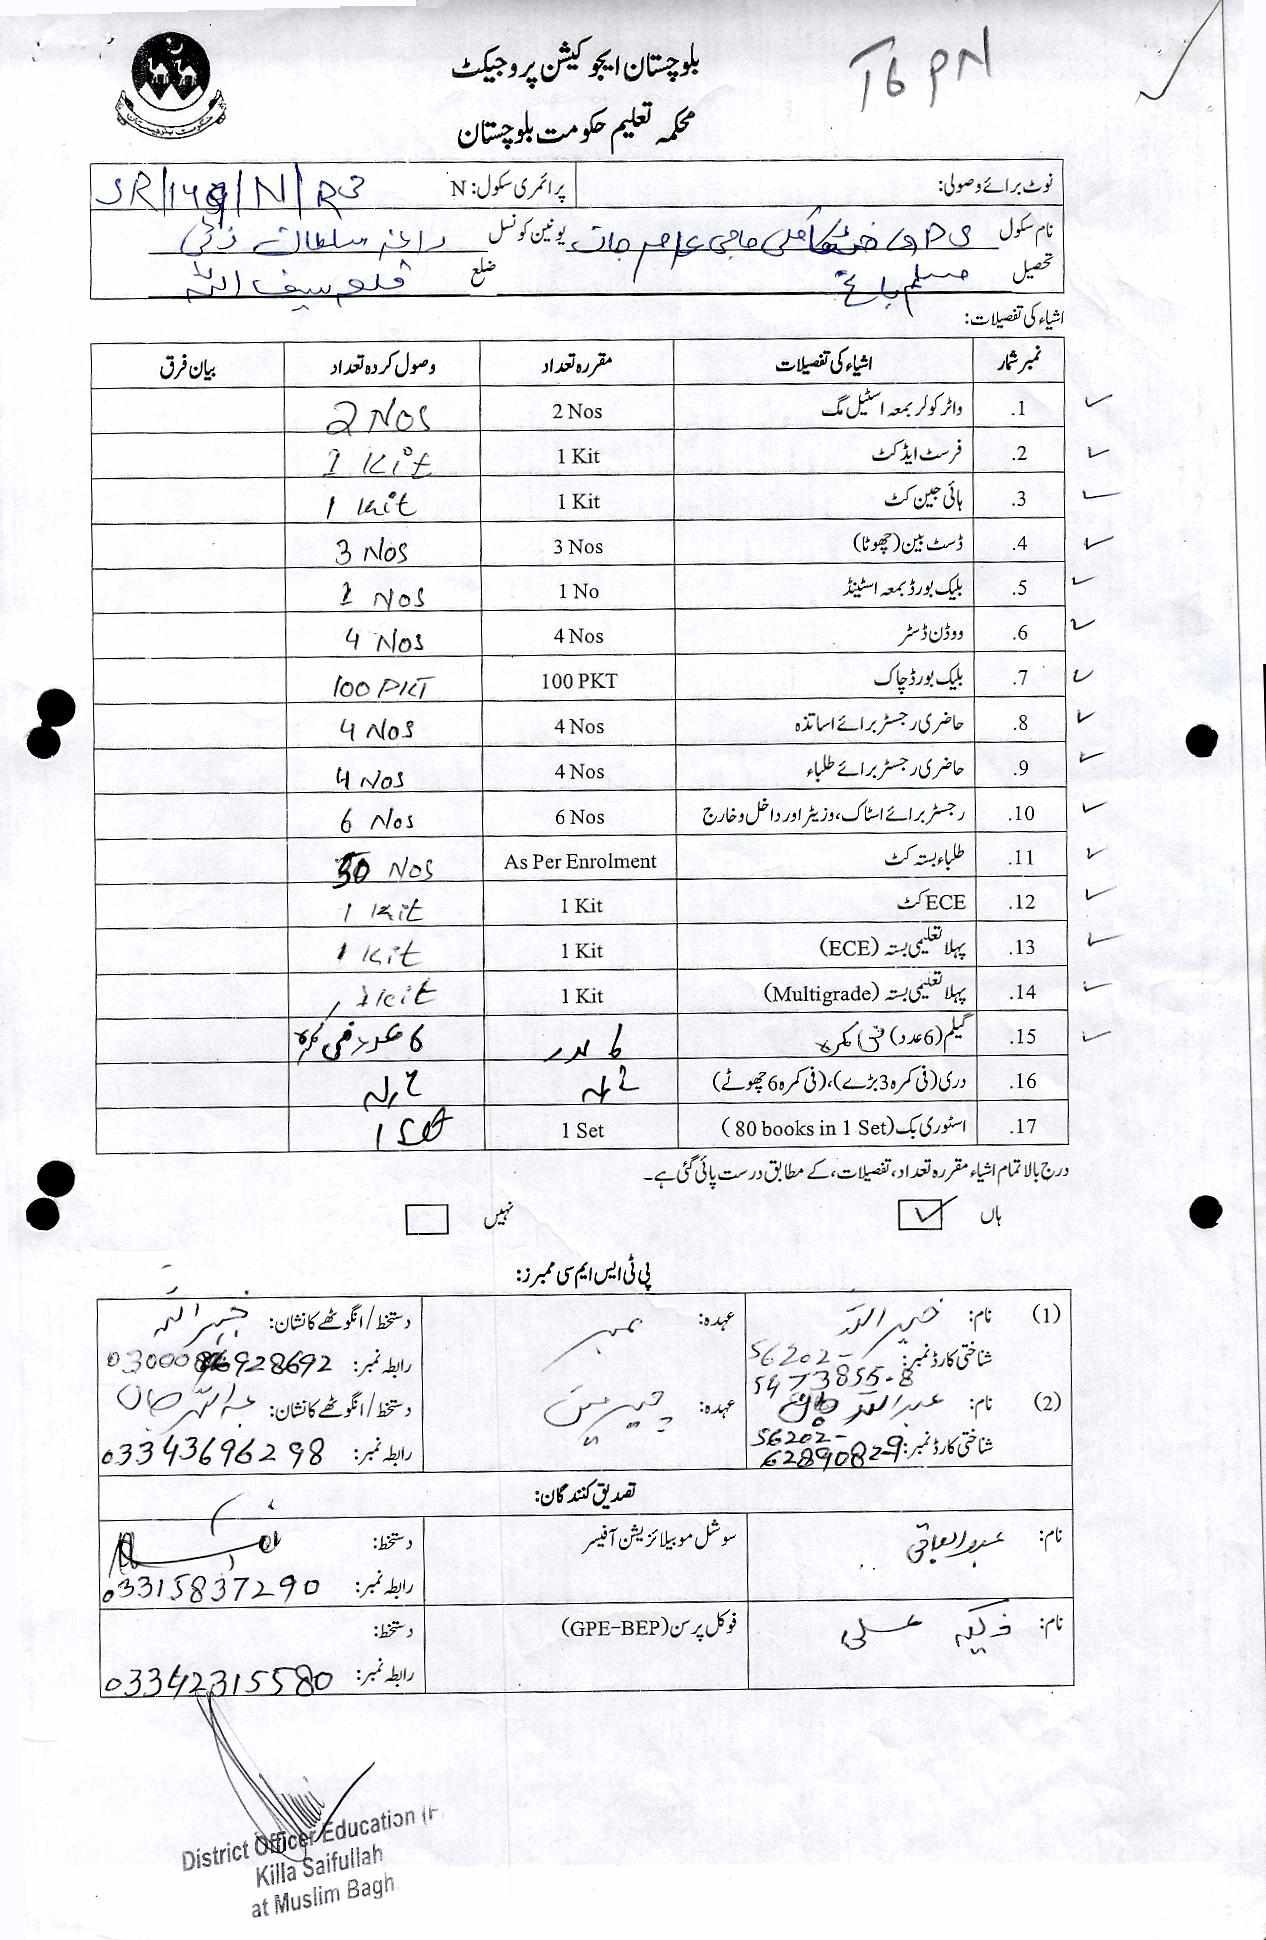 بلوچستان ایجوکیشن پروجیکٹ
محکمہ تعلیم حکومت بلوچستان
T6 PN
نوٹ برائے وصولی: پرائمری سکول: N
نام سکول یونین کونسل
تحصیل مسلم باغ ضلع قلعہ سیف اللہ
اشیاء کی تفصیلات:
نمبر شمار اشیاء کی تفصیلات مقررہ تعداد وصول کردہ تعداد بیان فرق
1. واٹر کولر بمعہ اسٹیل مگ 2 Nos 2 Nos
2. فرسٹ ایڈ کٹ 1 Kit 1 Kit
3. ہائی جین کٹ 1 Kit 1 Kit
4. ڈسٹ بین (چھوٹا) 3 Nos 3 Nos
5. بلیک بورڈ بمعہ اسٹینڈ 1 No 1 Nos
6. ووڈن ڈسٹر 4 Nos 4 Nos
7. بلیک بورڈ چاک 100 PKT 100 PKT
8. حاضری رجسٹر برائے اساتذہ 4 Nos 4 Nos
9. حاضری رجسٹر برائے طلباء 4 Nos 4 Nos
10. رجسٹر برائے اسٹاک، وزیٹر اور داخل و خارج 6 Nos 6 Nos
11. طلباء بستہ کٹ As Per Enrolment 50 Nos
12. ECE کٹ 1 Kit 1 Kit
13. پہلا تعلیمی بستہ (ECE) 1 Kit 1 Kit
14. پہلا تعلیمی بستہ (Multigrade) 1 Kit 1 Kit
15. گیلم (6 عدد) فی کمرہ 6 عدد 6 عدد فی کمرہ
16. دری (فی کمرہ 3 بڑے)، (فی کمرہ 6 چھوٹے)
17. اسٹوری بک (80 books in 1 Set) 1 Set 1 Set
درج بالا تمام اشیاء مقررہ تعداد، تفصیلات، کے مطابق درست پائی گئی ہے۔
ہاں نہیں
پی ٹی ایس ایم سی ممبرز:
(1) نام: خیر اللہ عہدہ: ممبر دستخط/انگوٹھے کا نشان: خیر اللہ
شناختی کارڈ نمبر: 56202-5473855-8 رابطہ نمبر:
(2) نام: عبداللہ جان عہدہ: چیرمین دستخط/انگوٹھے کا نشان: عبداللہ جان
شناختی کارڈ نمبر: 56202- رابطہ نمبر: 03343696298
تصدیق کنندگان:
نام: عبدالباقی سوشل موبیلائزیشن آفیسر دستخط:
رابطہ نمبر: 03315837290
نام: علی فوکل پرسن (GPE-BEP) دستخط:
رابطہ نمبر: 03342315580
District Officer Education (F
Killa Saifullah
at Muslim Bagh